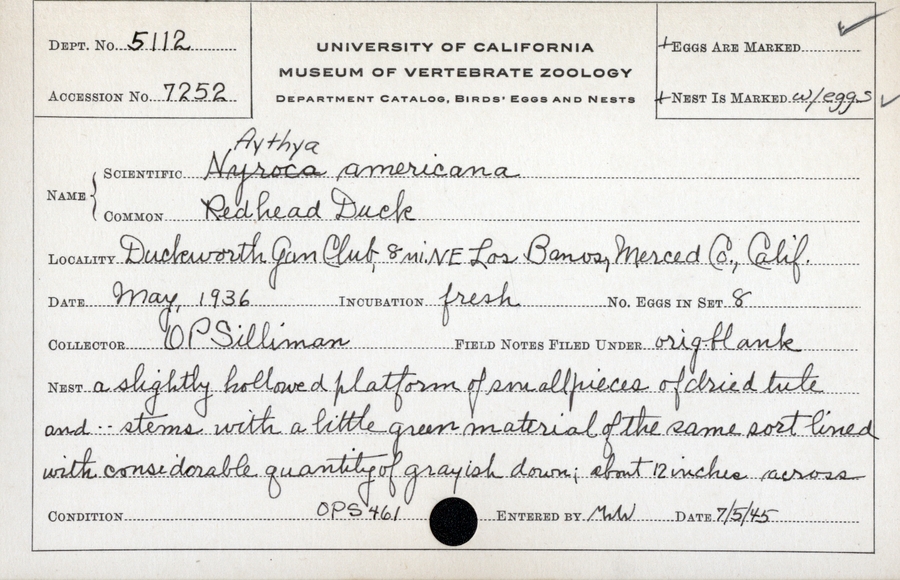 DEPT. No. 5112
ACCESSION No. 7252
UNIVERSITY OF CALIFORNIA
MUSEUM OF VERTEBRATE ZOOLOGY
DEPARTMENT CATALOG, BIRDS' EGGS AND NESTS
+EGGS ARE MARKED ✓
+NEST IS MARKED w/eggs ✓
Aythya
NAME { SCIENTIFIC Nyroca americana
COMMON Redhead Duck
LOCALITY Duckworth Gun Club, 8 mi. NE Los Banos, Merced Co., Calif.
DATE May, 1936 INCUBATION fresh No. EGGS IN SET 8
COLLECTOR O P Silliman FIELD NOTES FILED UNDER orig. blank
NEST a slightly hollowed platform of small pieces of dried tule
and -- stems with a little green material of the same sort lined
with considorable quantity of grayish down; about 12 inches across
CONDITION OPS 461 ENTERED BY DATE 7/5/45